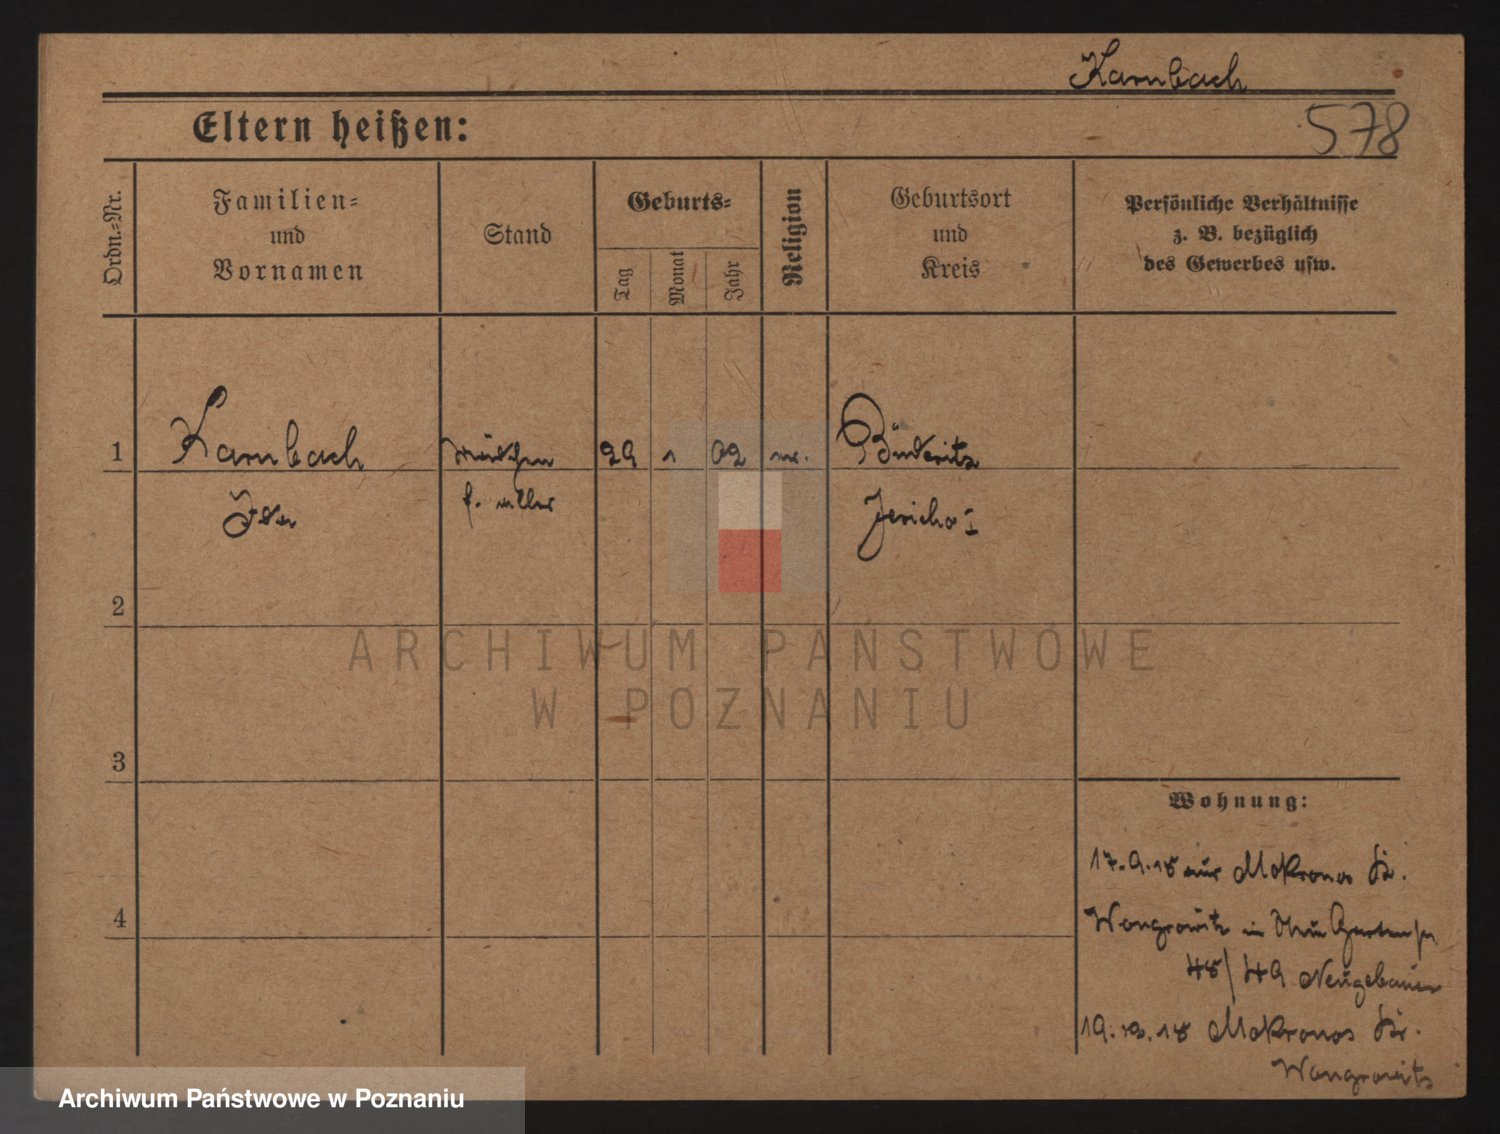 Karnbach
578
Eltern heißen:
Ordn.-Nr.
Familien-
und
Vornamen
Stand
Geburts-
Tag
Monat
Jahr
Religion
Geburtsort
und
Kreis
Persönliche Verhältnisse
z. B. bezüglich
des Gewerbes usw.
1 Karnbach Mädchen 29 1 02 Büderitz
Ida f. alles Jericho I
2
ARCHIWUM PAŃSTWOWE
W POZNANIU
3
Wohnung:
17.9.18 aus Mokronos Kr.
4
Wongrowitz in Gartenstr
48/49 Neugebauer
19.12.18 Mokronos Kr.
Wongrowitz
Archiwum Państwowe w Poznaniu